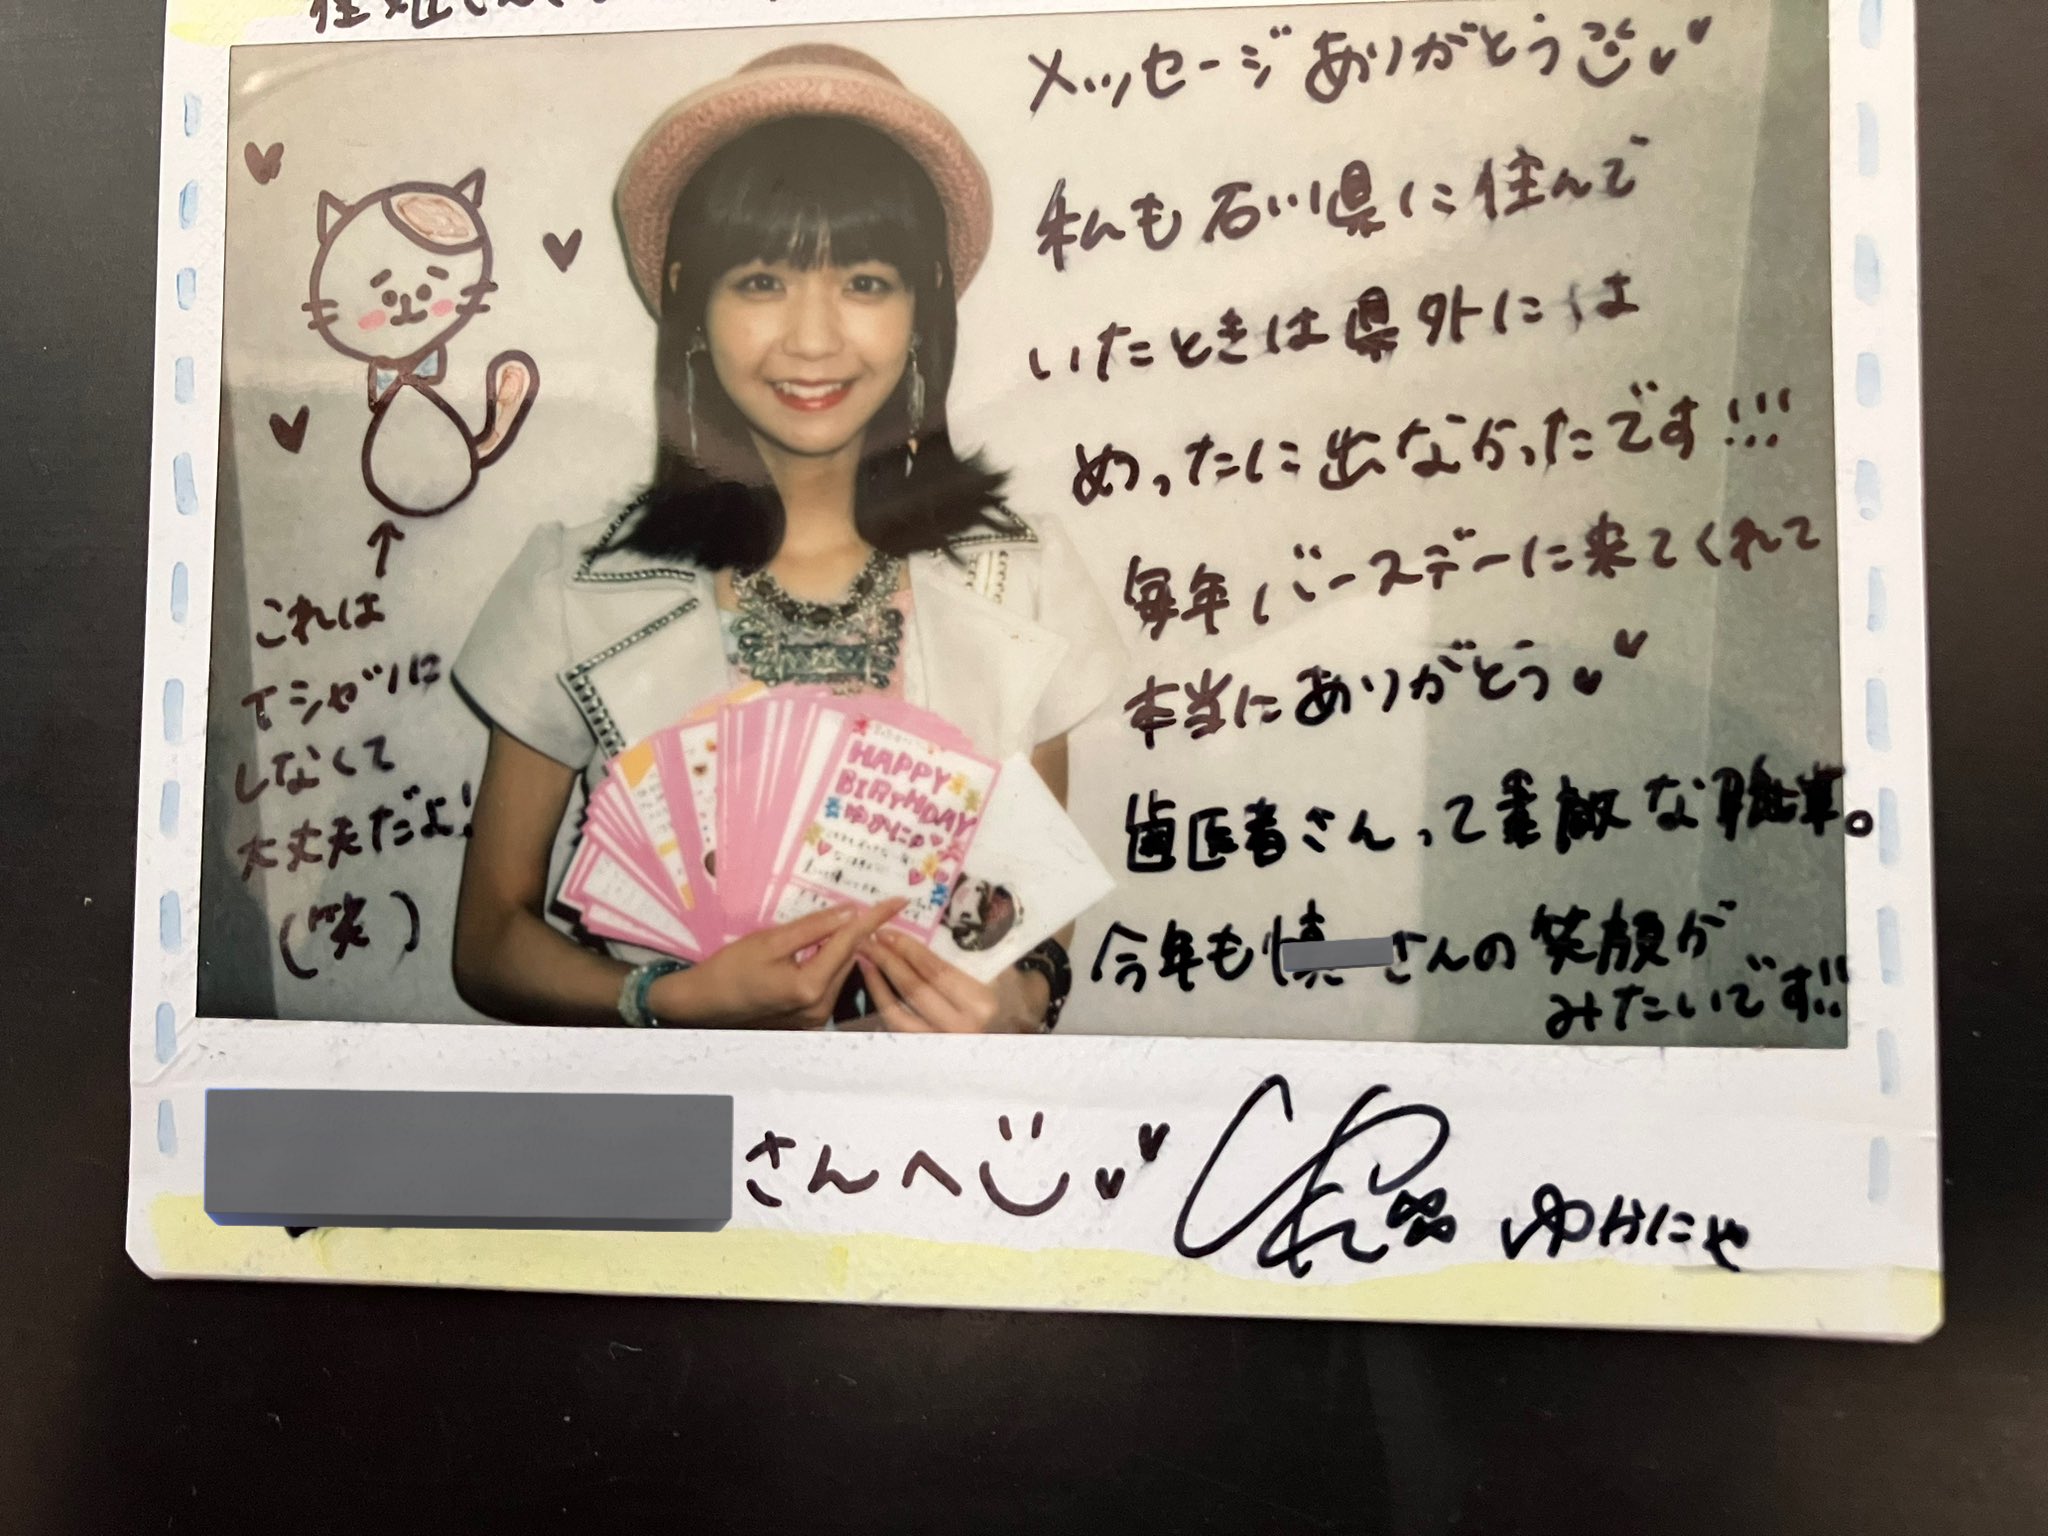 メッセージありがとう
私も石川県に住んで
いたときは県外には
めったに出なかったです!!!
毎年バースデーに来てくれて
本当にありがとう
歯医者さんって素敵な職業。
今年も慎 さんの笑顔が
みたいです!!
これは
Tシャツに
しなくて
大丈夫だよ!
(笑)
HAPPY
BIRTHDAY
ゆかにゃ
さんへ
ゆかにゃ